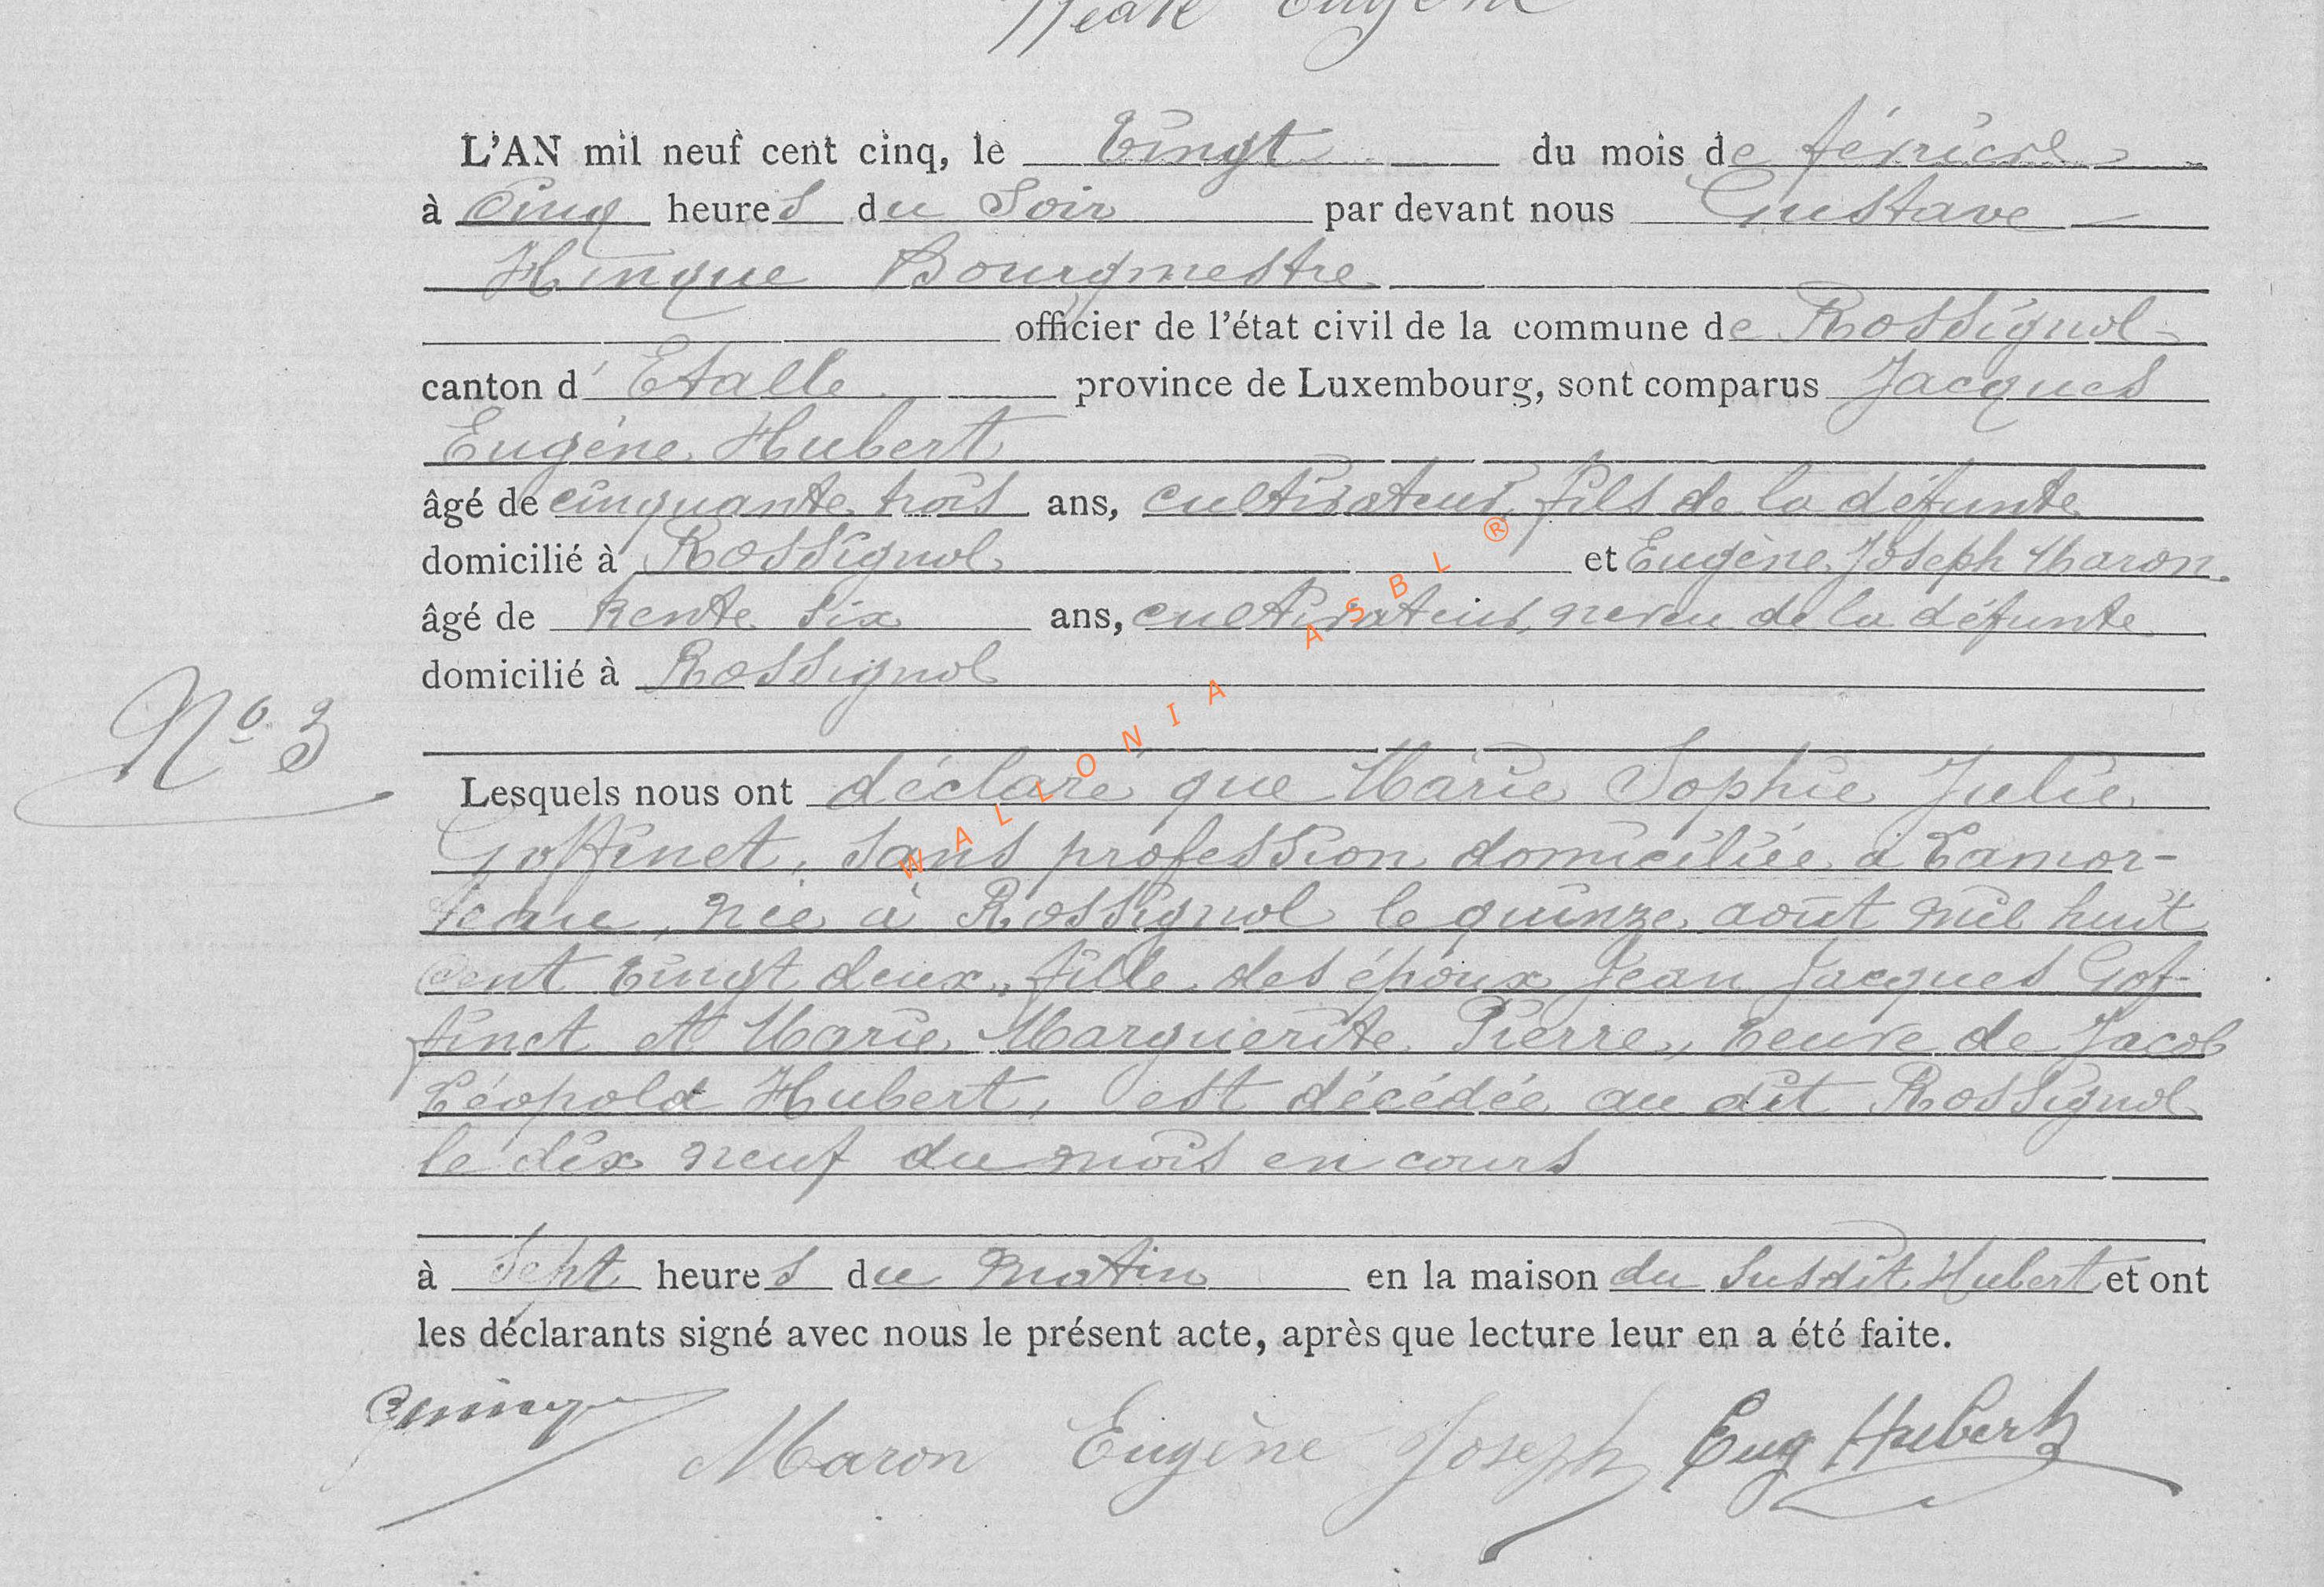 Jean Eugène
L'AN mil neuf cent cinq, le vingt du mois de février
à cinq heures du soir par devant nous Gustave
Hinque Bourgmestre
officier de l'état civil de la commune de Rossignol
canton d'Etalle province de Luxembourg, sont comparus Jacques
Eugène Hubert
âgé de cinquante trois ans, cultivateur, fils de la défunte
domicilié à Rossignol et Eugène Joseph Maron.
âgé de trente six ans, cultivateur, neveu de la défunte
domicilié à Rossignol
Nº 3
Lesquels nous ont déclaré que Marie Sophie Julie
Goffinet, sans profession domiciliée à Lamor-
teau, née à Rossignol le quinze août mil huit
cent vingt deux, fille des époux Jean Jacques Gof-
finet et Marie Marguerite Pierre, veuve de Jacob
Léopold Hubert, est décédée au dit Rossignol
le dix neuf du mois en cours
à sept heures du matin en la maison du susdit Hubert et ont
les déclarants signé avec nous le présent acte, après que lecture leur en a été faite.
GHinque Maron Eugène Joseph Eug Hubert
WALLONIA ASBL ®